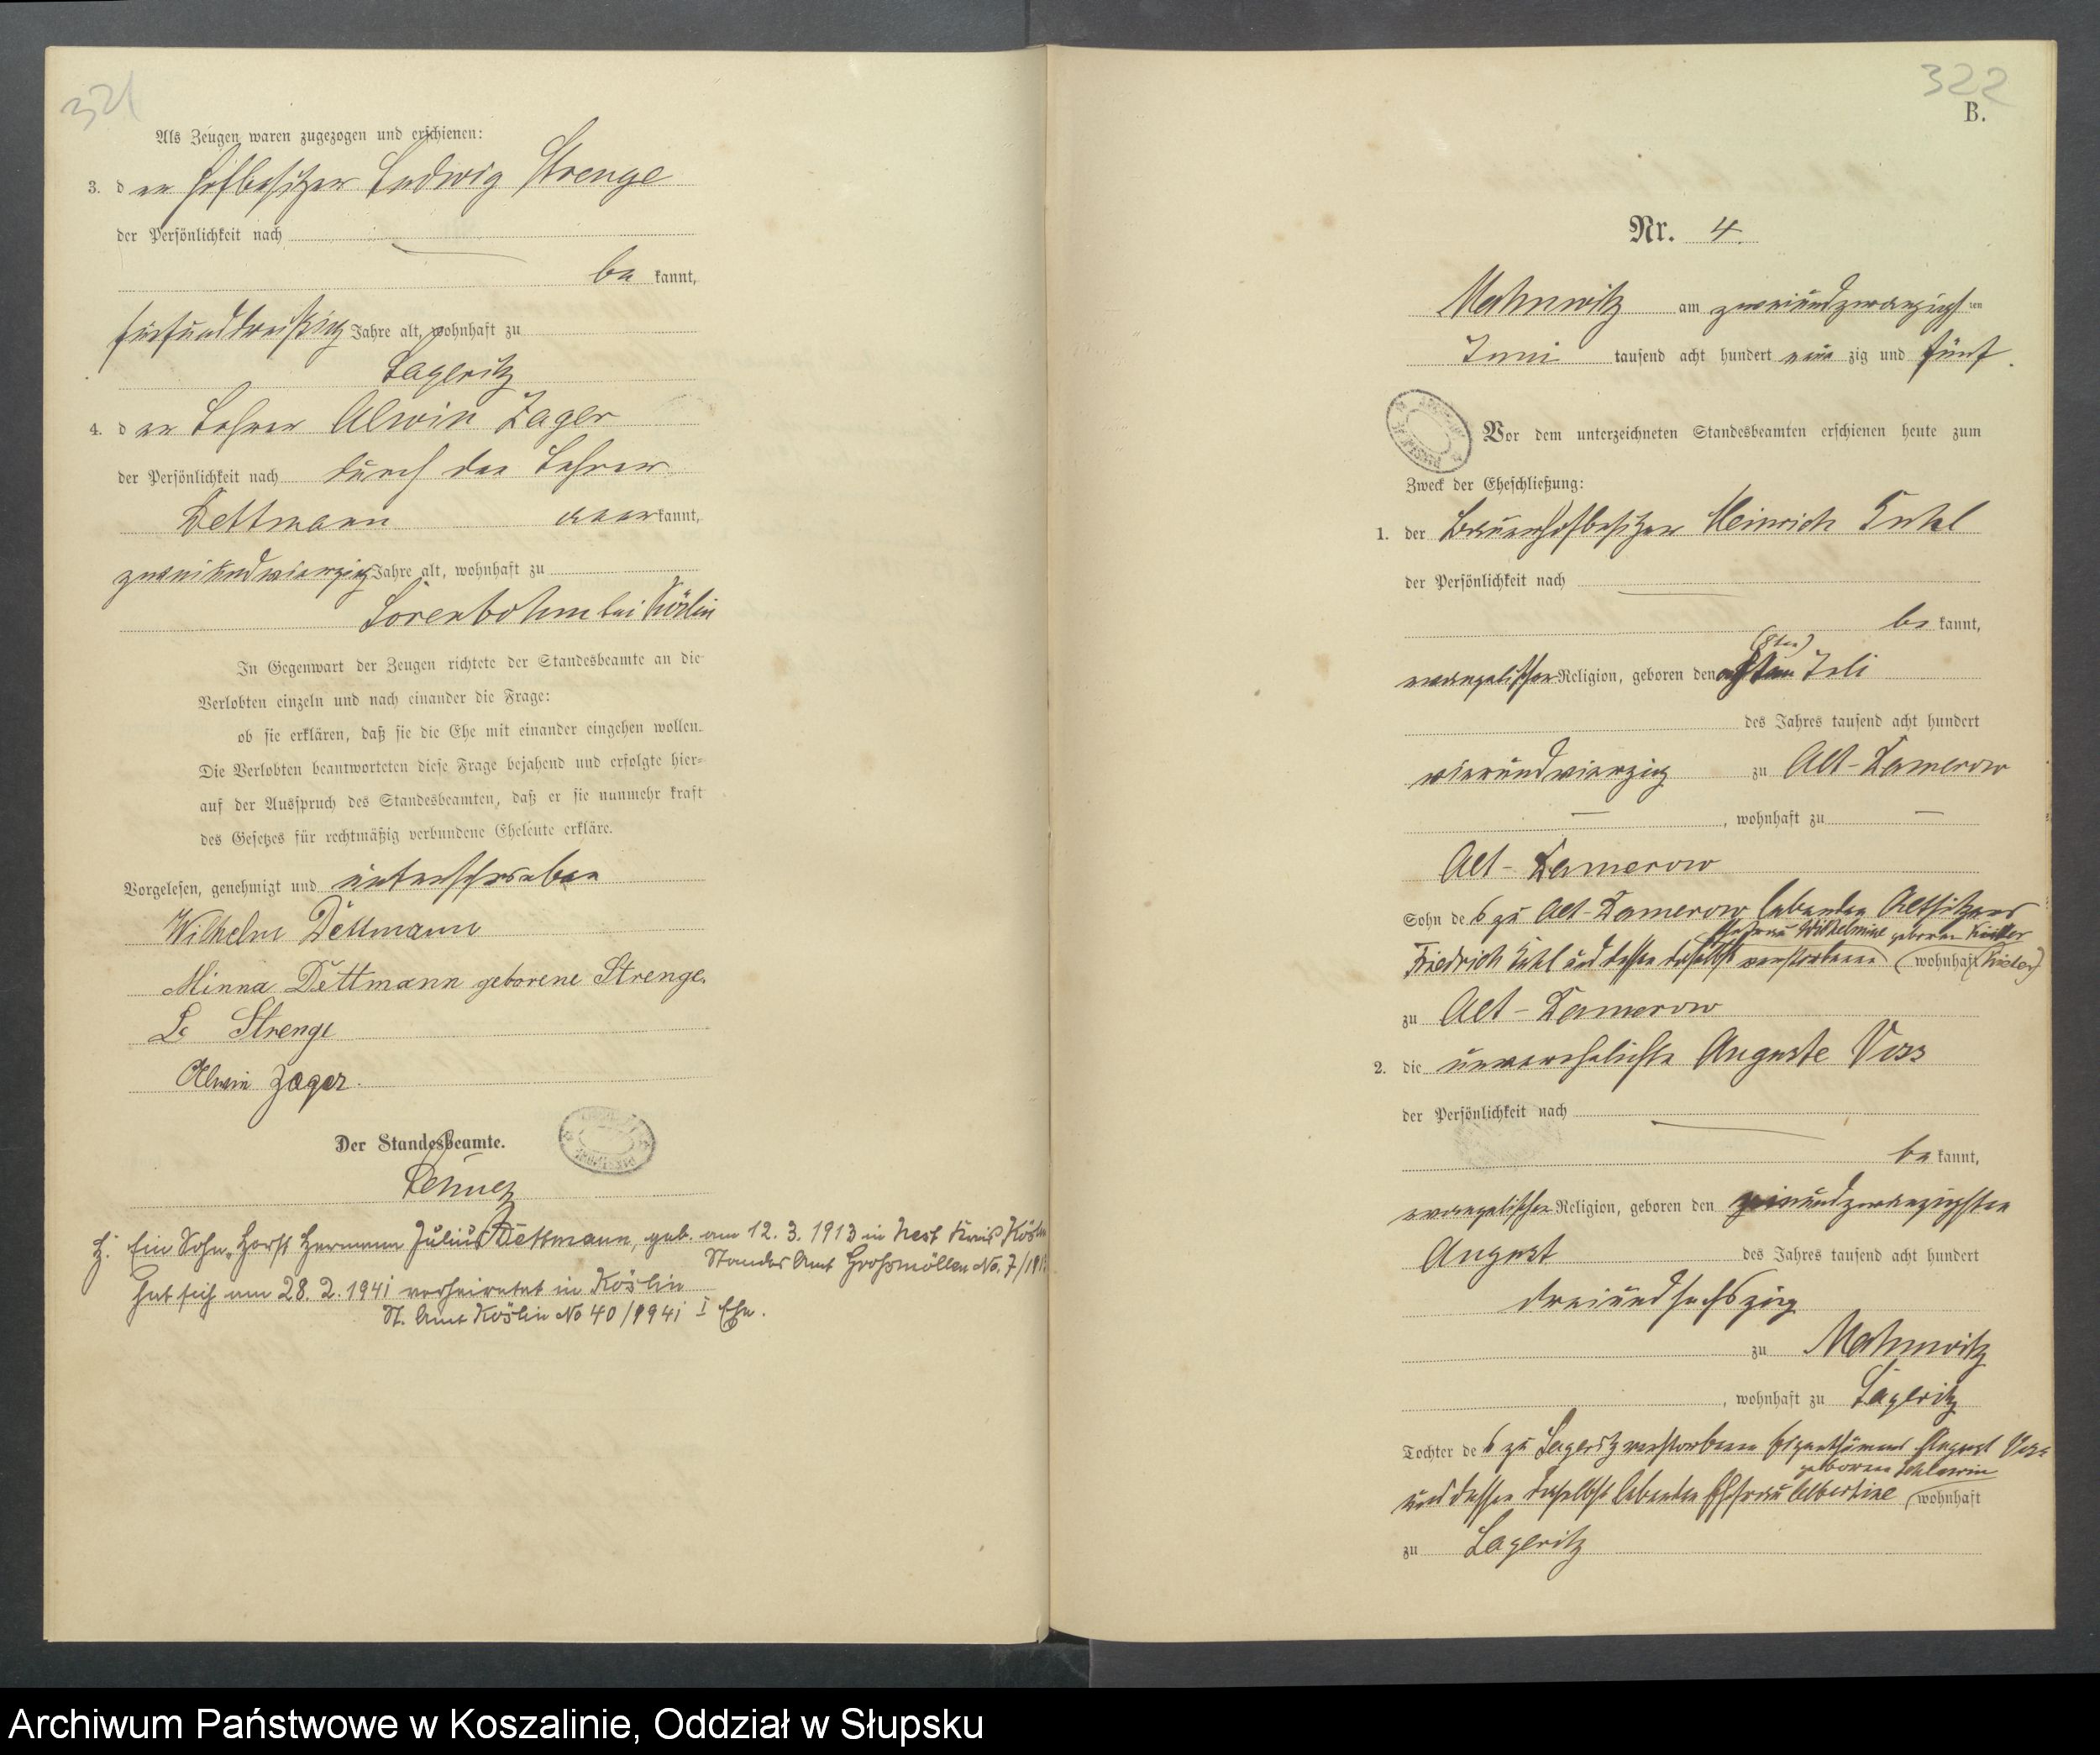 321
Als Zeugen waren zugezogen und erschienen:
3. der Hofbesitzer Ludwig Strenge
der Persönlichkeit nach
be kannt,
fünfunddreißig Jahre alt, wohnhaft zu
Lageritz
4. der Lehrer Alwin Zager
der Persönlichkeit nach durch den Lehrer
Dettmann anerkannt,
zweiundvierzig Jahre alt, wohnhaft zu
Sorenbohm bei Köslin
In Gegenwart der Zeugen richtete der Standesbeamte an die
Verlobten einzeln und nach einander die Frage:
ob sie erklären, daß sie die Ehe mit einander eingehen wollen.
Die Verlobten beantworteten diese Frage bejahend und erfolgte hier-
auf der Ausspruch des Standesbeamten, daß er sie nunmehr kraft
des Gesetzes für rechtmäßig verbundene Eheleute erkläre.
Vorgelesen, genehmigt und unterschrieben
Wilhelm Dettmann
Minna Dettmann geborene Strenge.
L. Strenge
Alwin Zager.
Der Standesbeamte.
Ein Sohn, Horst Hermann Julius Dettmann, geb. am 12. 3. 1913 in Nest Kreis Köslin
Standes Amt Großmöllen No. 7/191
hat sich am 28. 2. 1941 verheiratet in Köslin
St. Amt Köslin No 40/1941 I Ehe.
322
B.
Nr. 4.
Mahnwitz am zweiundzwanzigsten
Juni tausend acht hundert neun zig und fünf.
Vor dem unterzeichneten Standesbeamten erschienen heute zum
Zweck der Eheschließung:
1. der Bauerhofbesitzer Heinrich Kuhl
der Persönlichkeit nach
be kannt,
(8ten)
evangelischer Religion, geboren den achten Juli
des Jahres tausend acht hundert
vierundvierzig zu Alt-Damerow
, wohnhaft zu
Alt-Damerow
Sohn des zu Alt-Damerow lebenden Altsitzers
Ehefrau Wilhelmine geborene
Friedrich Kuhl und dessen daselbst verstorbenen wohnhaft (Kieler)
zu Alt-Damerow
2. die unverehelichte Auguste Voss
der Persönlichkeit nach
be kannt,
evangelischer Religion, geboren den einundzwanzigsten
August des Jahres tausend acht hundert
dreiundsechszig
zu Mahnwitz
, wohnhaft zu Lageritz
Tochter des zu Lageritz verstorbenen Eigenthümers August Voss
geborene
und dessen daselbst lebenden Ehefrau Albertine wohnhaft
zu Lageritz
Archiwum Państwowe w Koszalinie, Oddział w Słupsku